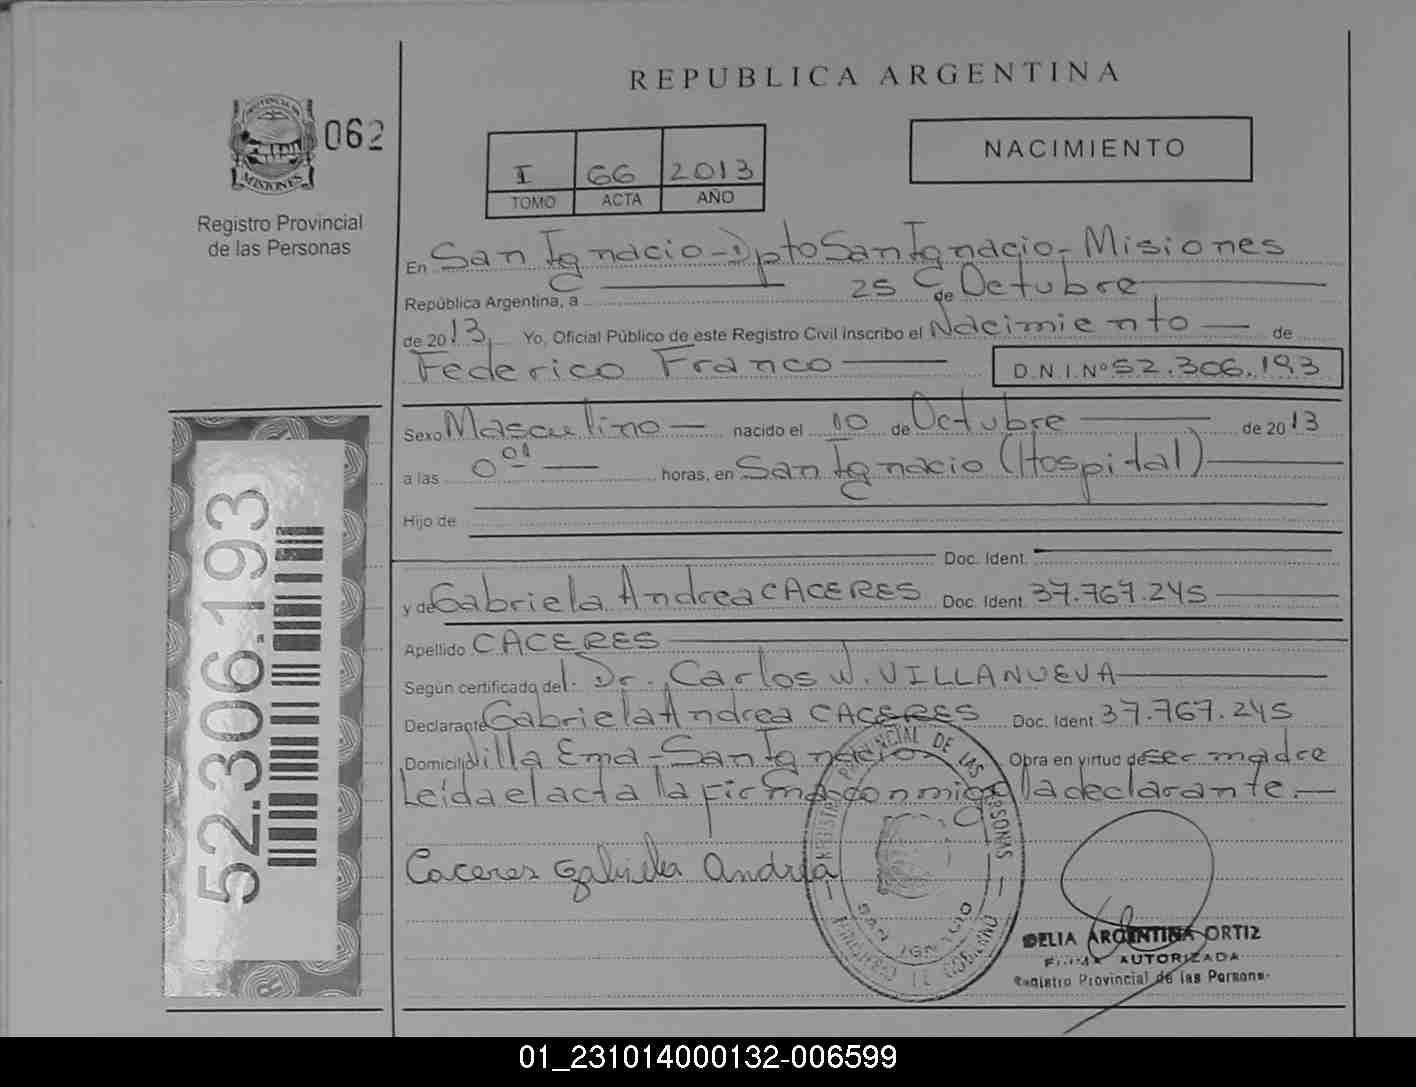 REPUBLICA ARGENTINA
PROVINCIA DE
MISIONES
062
Registro Provincial
de las Personas
I 66 2013
TOMO ACTA AÑO
NACIMIENTO
En San Ignacio - Dpto San Ignacio - Misiones
República Argentina, a 25 de Octubre
de 2013 Yo, Oficial Público de este Registro Civil Inscribo el Nacimiento de
Federico Franco D.N.I.Nº 52.306.193
Sexo Masculino nacido el 10 de Octubre de 2013
a las 0 01 horas, en San Ignacio (Hospital)
Hijo de
Doc. Ident.
y de Gabriela Andrea CACERES Doc. Ident. 37.767.245
Apellido CACERES
Según certificado del. Dr. Carlos W. VILLANUEVA
Declarante Gabriela Andrea CACERES Doc. Ident 37.767.245
Domicilio Villa Ema - San Ignacio Obra en virtud de ser madre
Leída el acta la firma conmigo la declarante.-
Caceres Gabriela Andrea
REGISTRO PROVINCIAL DE LAS PERSONAS
SAN IGNACIO
MINISTERIO DE GOBIERNO
DELIA ARGENTINA ORTIZ
FIRMA AUTORIZADA
Registro Provincial de las Persona.
52.306.193
01_231014000132-006599